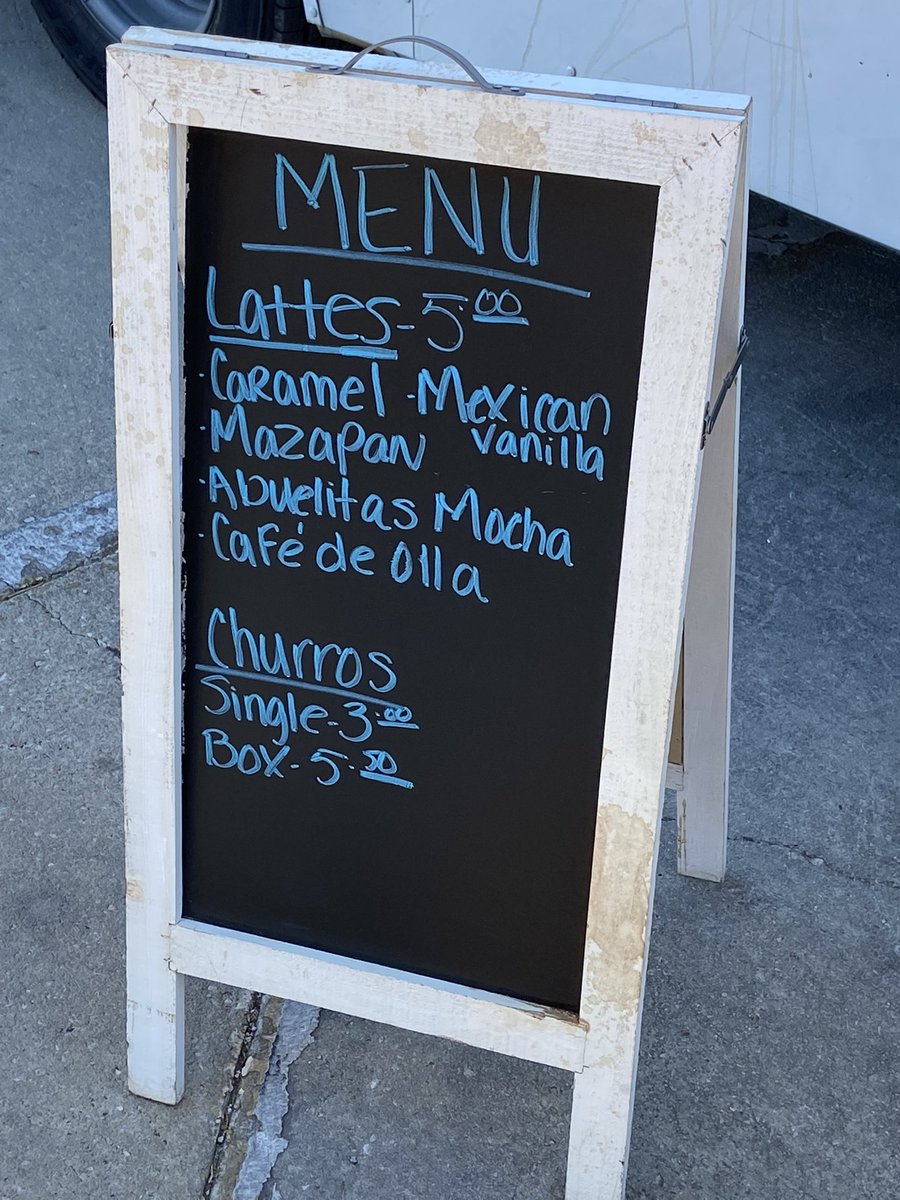 MENU
Lattes - 5.00
· Caramel · Mexican
· Mazapan vanilla
· Abuelitas Mocha
· Café de Olla
Churros
Single - 3.00
Box - 5.50